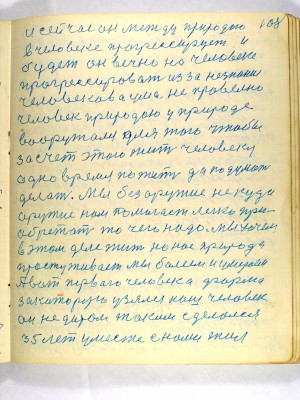 и сейчас он между природою 108
в человеке прогрессирует и
будет он вечно но человека
прогрессироват из за незнания
человекова ума. не правелно
человек природою у природе
вооружали для того чтобы
за счет этого жит человеку
адно время пожить да подумат
делат. Мы без оружие не куда
оружие нам помагает легко при-
обретат то чего надо. мы хочем
в этом деле жит но нас природа
простуживает мы болеем и умираем
А вот первого человека форма
за которую узялся наш человек
он не даром таким сделался
35 лет умести с нами жил